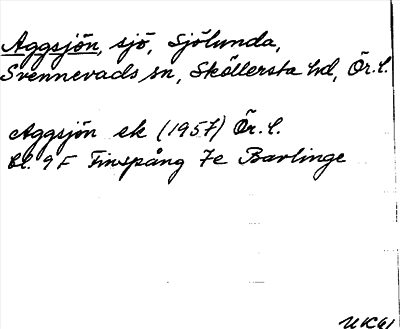 Aggsjön, sjö, Sjölunda,
Svennevads sn, Sköllersta hd, Ör.l.
Aggsjön ek (1957) Ör.l.
bl. 9F Finspång 7e Barlinge